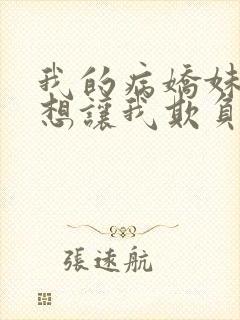 我的病嬌妹
想讓我欺負
張遠航